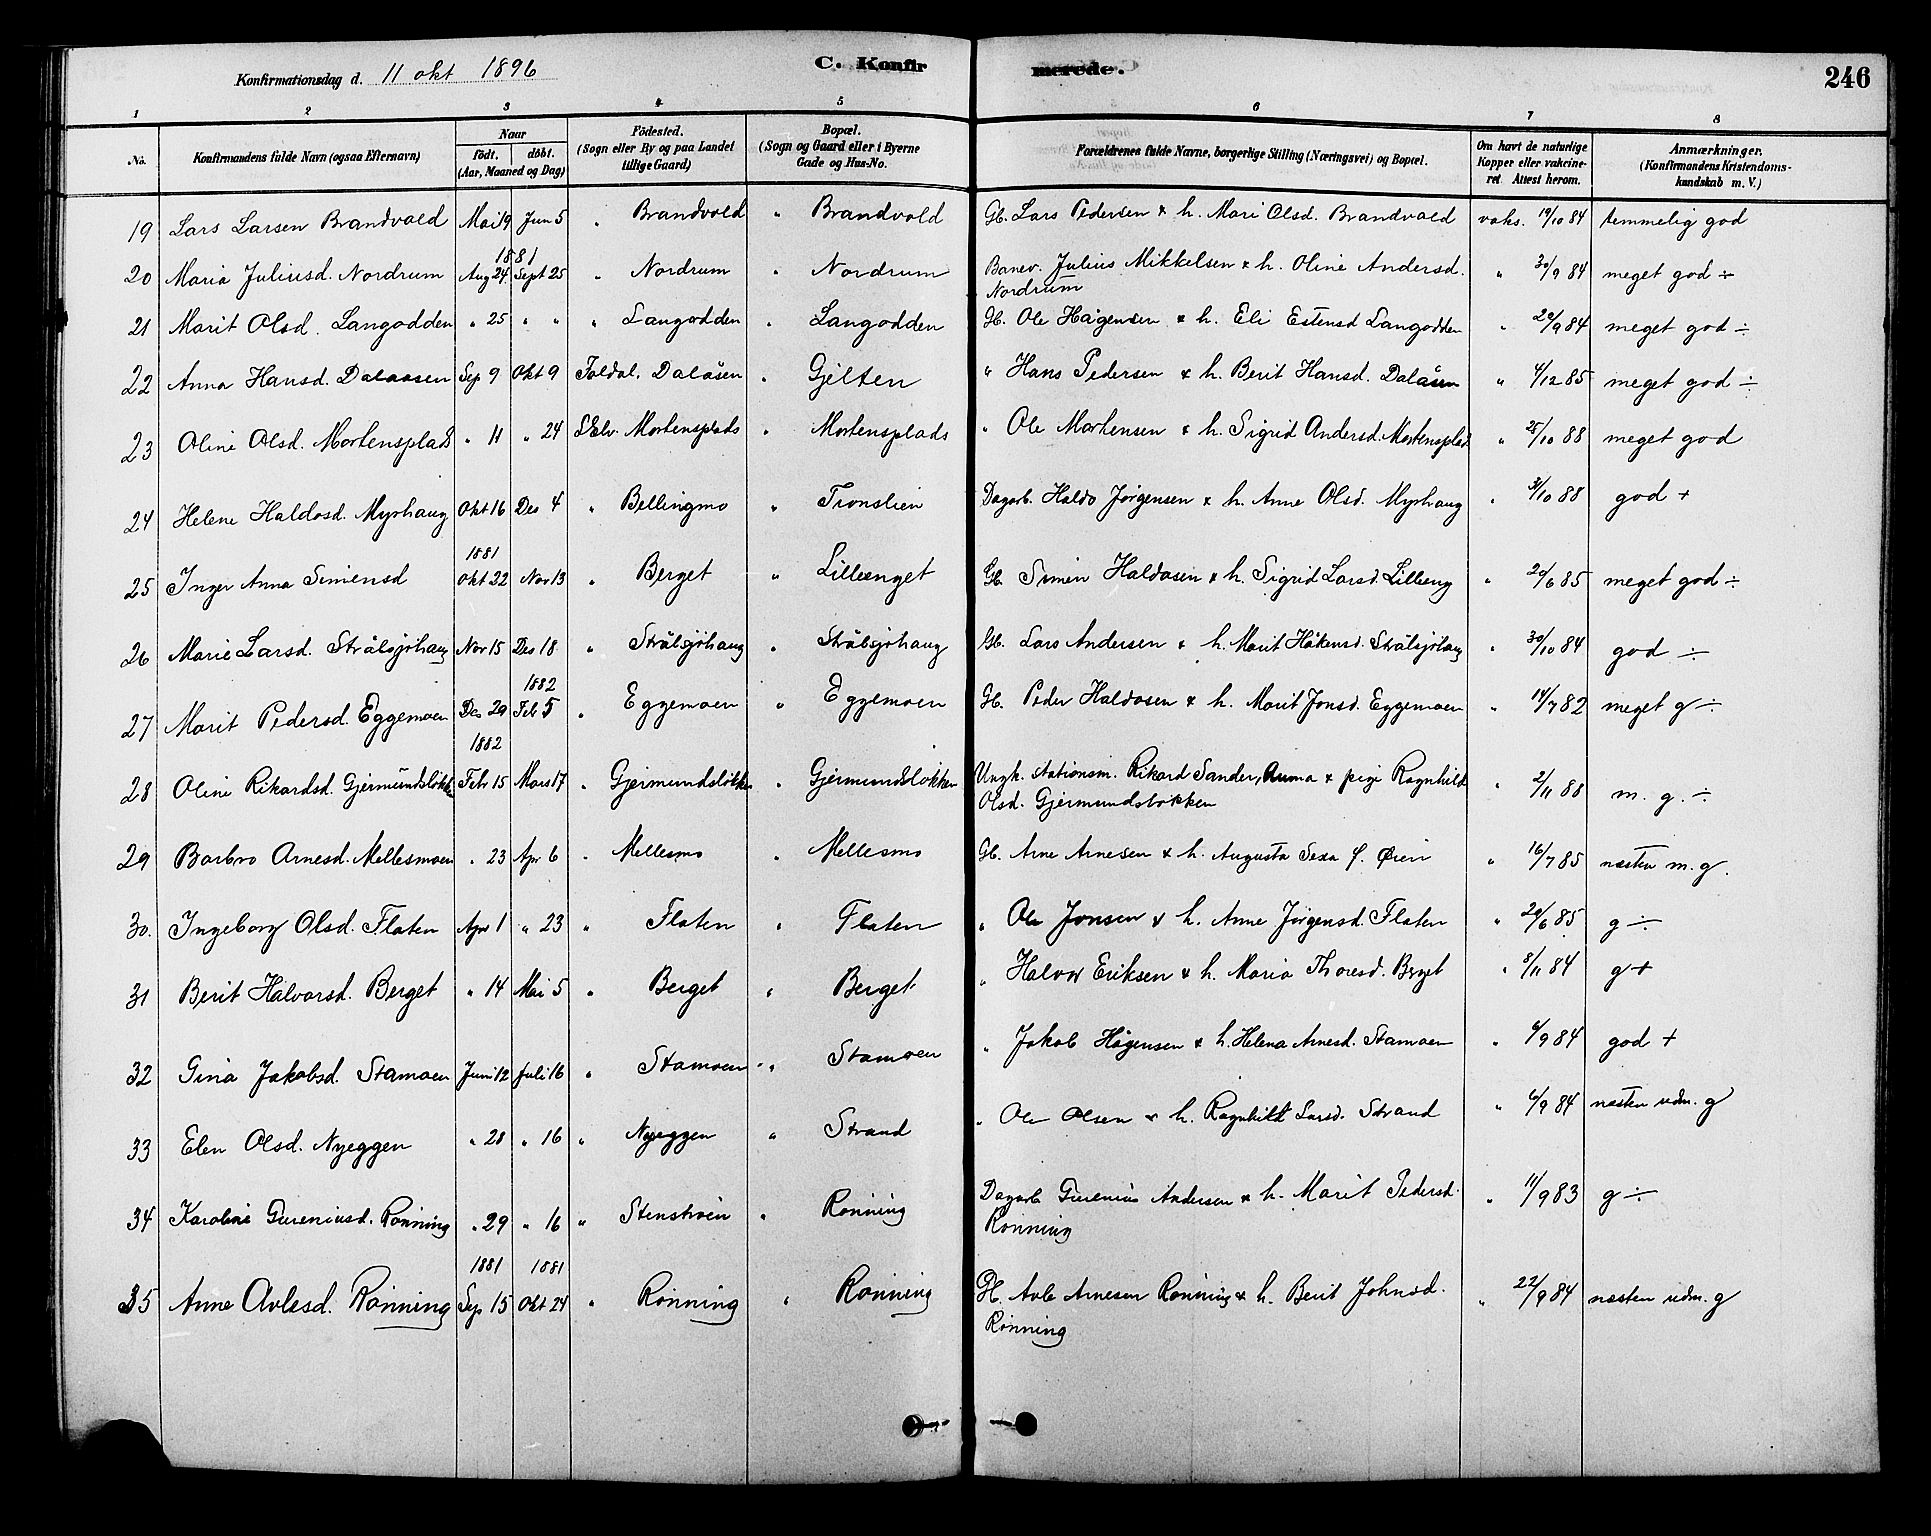 Konfirmationsdag d. 11 okt 1896 C. Konfirmerede. 246
1 2 3 4 5 6 7 8
No. Konfirmandens fulde Navn (ogsaa Efternavn) Naar födt. döbt. (Aar, Maaned og Dag) Födested. (Sogn eller By og paa Landet tillige Gaard) Bopæl. (Sogn og Gaard eller i Byerne Gade og Hus-No. Forældrenes fulde Navne, borgerlige Stilling (Næringsvei) og Bopæl. Om havt de naturlige Kopper eller vakcineret. Attest herom. Anmærkninger. (Konfirmandens Kristendomskundskab m. V.)
19 Lars Larsen Brandvold Mai 19 Jun 5 " Brandvold " Brandvold Gb. Lars Pedersen & h. Mari Olsd. Brandvold vaks. 19/10 84 temmelig god
1881
20 Maria Juliusd. Nordrum Aug 24. Sept 25 " Nordrum " Nordrum Banev. Julius Mikkelsen & h. Oline Andersd. " 30/9 84 meget god ÷
Nordrum
21 Marit Olsd. Langodden " 25 " " " Langodden " Langodden Gb. Ole Hågensen & h. Eli Estensd Langodden " 20/9 84 meget god ÷
22 Anna Hansd. Dalaasen Sep 9 Okt 9 Foldal. Dalåsen " Gjelten " Hans Pedersen & h. Berit Hansd. Dalåsen " 4/12 85 meget god ÷
23 Oline Olsd. Mortensplads " 11 " 24 S Elv. Mortensplads " Mortensplads " Ole Mortensen & h. Sigrid Andersd. Mortensplad " 25/10 88 meget god
24 Helene Haldosd. Myrhaug Okt 16 Des 4 " Bellingmo " Tronslien Dagarb. Haldo Jørgensen & h. Anne Olsd. Myrhaug " 31/10 88 god +
1881
25 Inger Anna Simensd Okt 22 Nov 13 " Berget " Lilleenget Gb. Simen Haldosen & h. Sigrid Larsd. Lilleeng " 20/6 85 meget god ÷
26 Marie Larsd. Strålsjøhaug Nov 15 Des 18 " Strålsjøhaug " Strålsjøhaug Gb. Lars Andersen & h. Marit Håkensd. Strålsjøhaug " 30/10 84 god ÷
1882
27 Marit Pedersd. Eggemoen Des 29 Feb 5 " Eggemoen " Eggemoen Gb. Peder Haldosen & h. Marit Jonsd. Eggemoen " 14/7 82 meget g ÷
1882
28 Oline Rikardsd. Gjermundsløkken Febr 15 Mars 17 " Gjermundsløkken " Gjermundsløkken Ungk. stationsm. Rikard Sander, Auma & pige Ragnhild " 2/11 88 m. g. ÷
Olsd. Gjermundsløkken
29 Barbro Arnesd. Mellesmoen " 23 Apr 6 " Mellesmo " Mellesmo Gb. Arne Arnesen & h. Augusta Sexa f. Øien " 16/7 85 næsten m. g.
30. Ingeborg Olsd. Flaten Apr 1 " 23 " Flaten " Flaten " Ole Jonsen & h. Anne Jørgensd. Flaten " 20/6 85 g ÷
31 Berit Halvorsd. Berget " 14 Mai 5 " Berget " Berget " Halvor Eriksen & h. Maria Thoresd. Berget " 8/11 84 g +
32 Gina Jakobsd. Stamoen Juni 12 Juli 16 " Stamoen " Stamoen " Jakob Hågensen & h. Helena Arnesd. Stamoen " 6/9 84 god +
33 Elen Olsd. Nyeggen " 28 " 16 " Nyeggen " Strand " Ole Olsen & h. Ragnhild Larsd. Strand " 6/9 84 næsten udm. g
34 Karoline Gureniusd. Rønning " 29 " 16 " Stenstroen " Rønning Dagarb Gurenius Andersen & h. Marit Pedersd. " 11/9 83 g ÷
Rønning
1881 1881
35 Anne Avlesd. Rønning Sep 15 Okt 24 " Rønning " Rønning Gb. Avle Arnesen Rønning & h. Berit Johnsd. " 22/9 84 næsten udm. g
Rønning